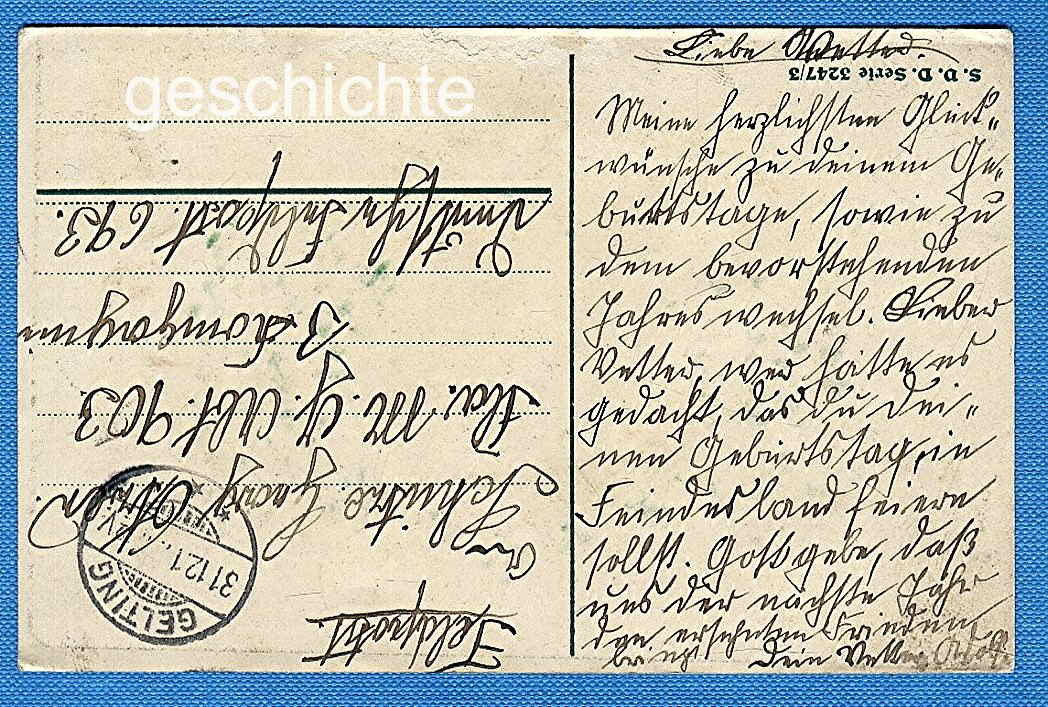 geschichte
Liebe Vetter.
S. D. D. Serie 3247/3
Meine herzlichsten Glück-
wünsche zu deinem Ge-
burtstage, sowie zu
dem bevorstehenden
Jahreswechsel. Lieber
Vetter, wer hätte es
gedacht, das du dei-
nen Geburtstag, in
Feindesland feiern
sollst. Gott gebe, daß
uns der nächste Jahr
den ersehnten Frieden
bringt Dein Vetter
Feldpost
An Schütze Georg
M. G. Abt. 903
3 Kompagnie
Deutsche Feldpost 693.
GELTING
31.12.1